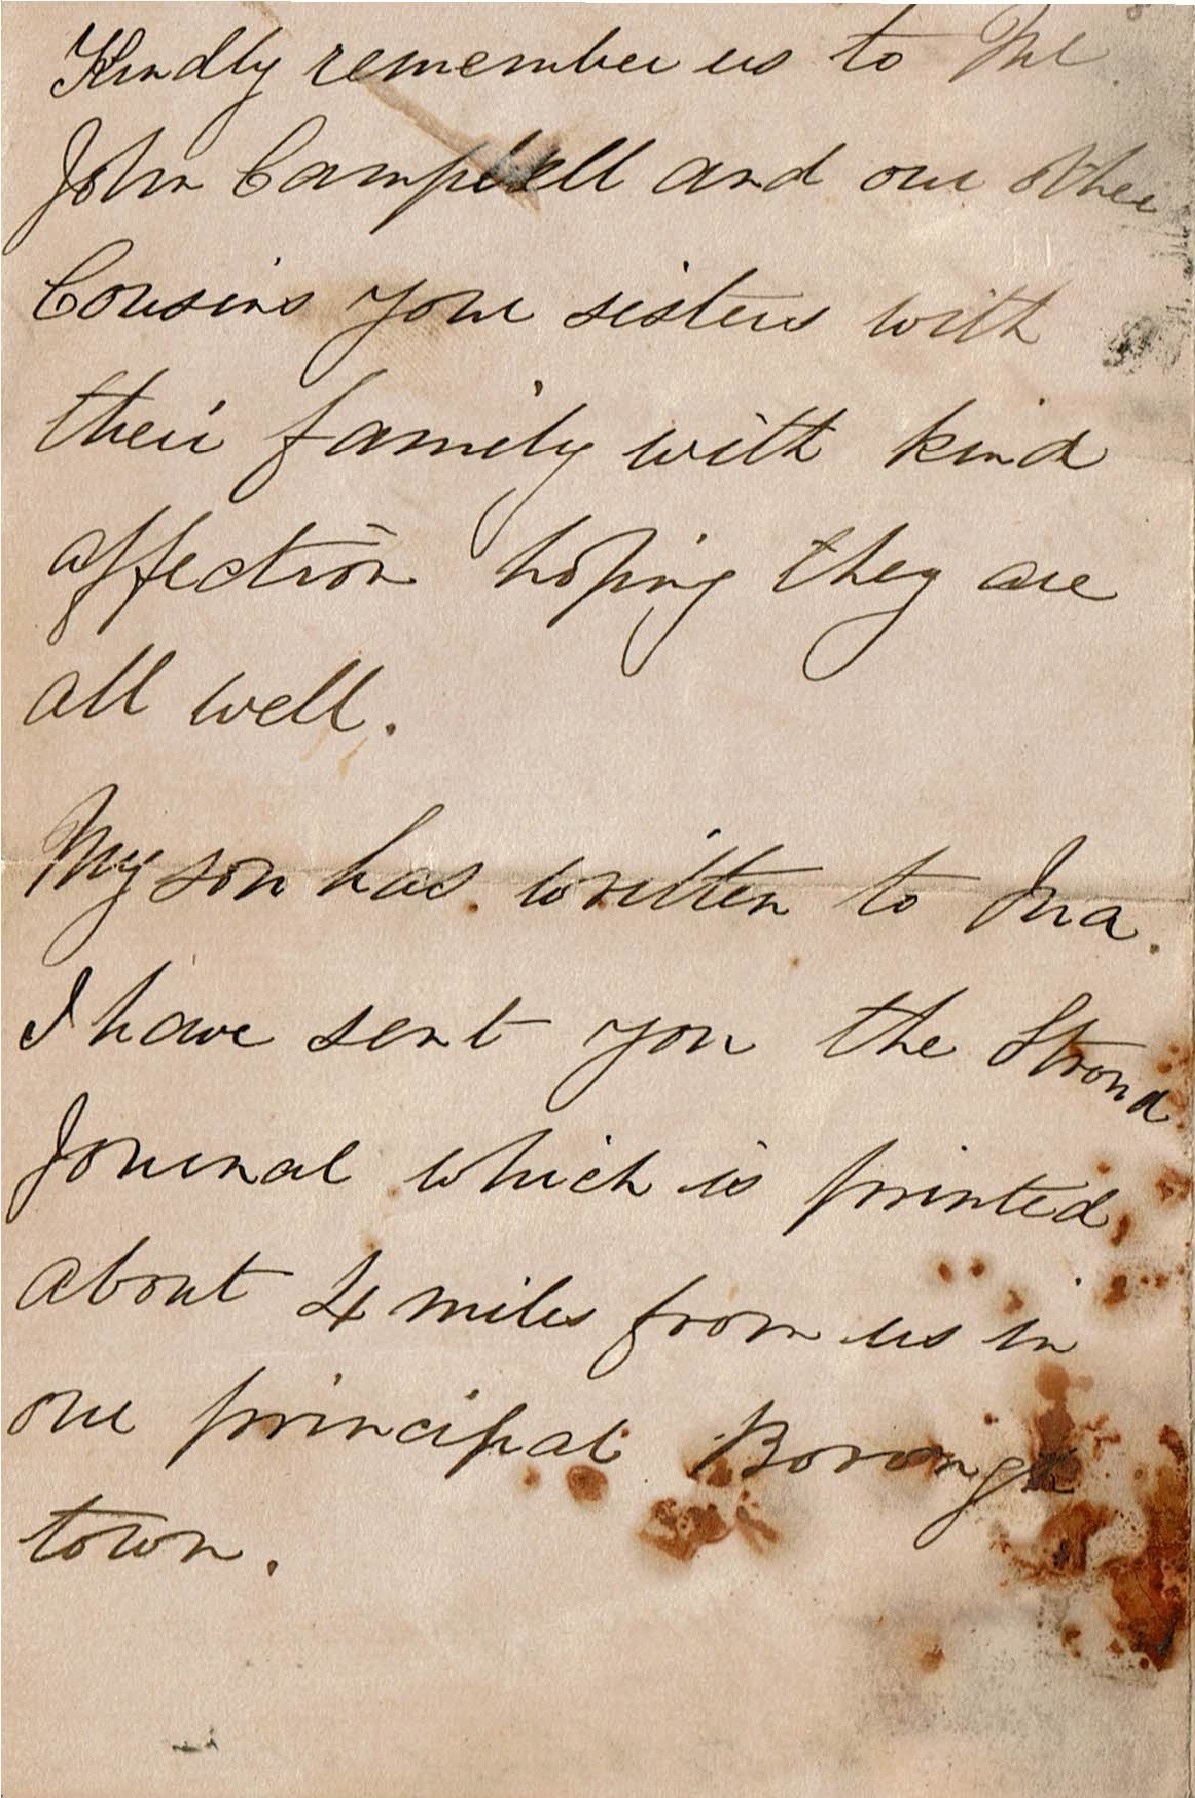 Kindly remember us to Mr
John Campbell and our other
Cousins your sisters with
their family with kind
affection hoping they are
all well.
My son has written to Ina.
I have sent you the Stroud
Journal which is printed
about 4 miles from us in
our principal Borough
town.